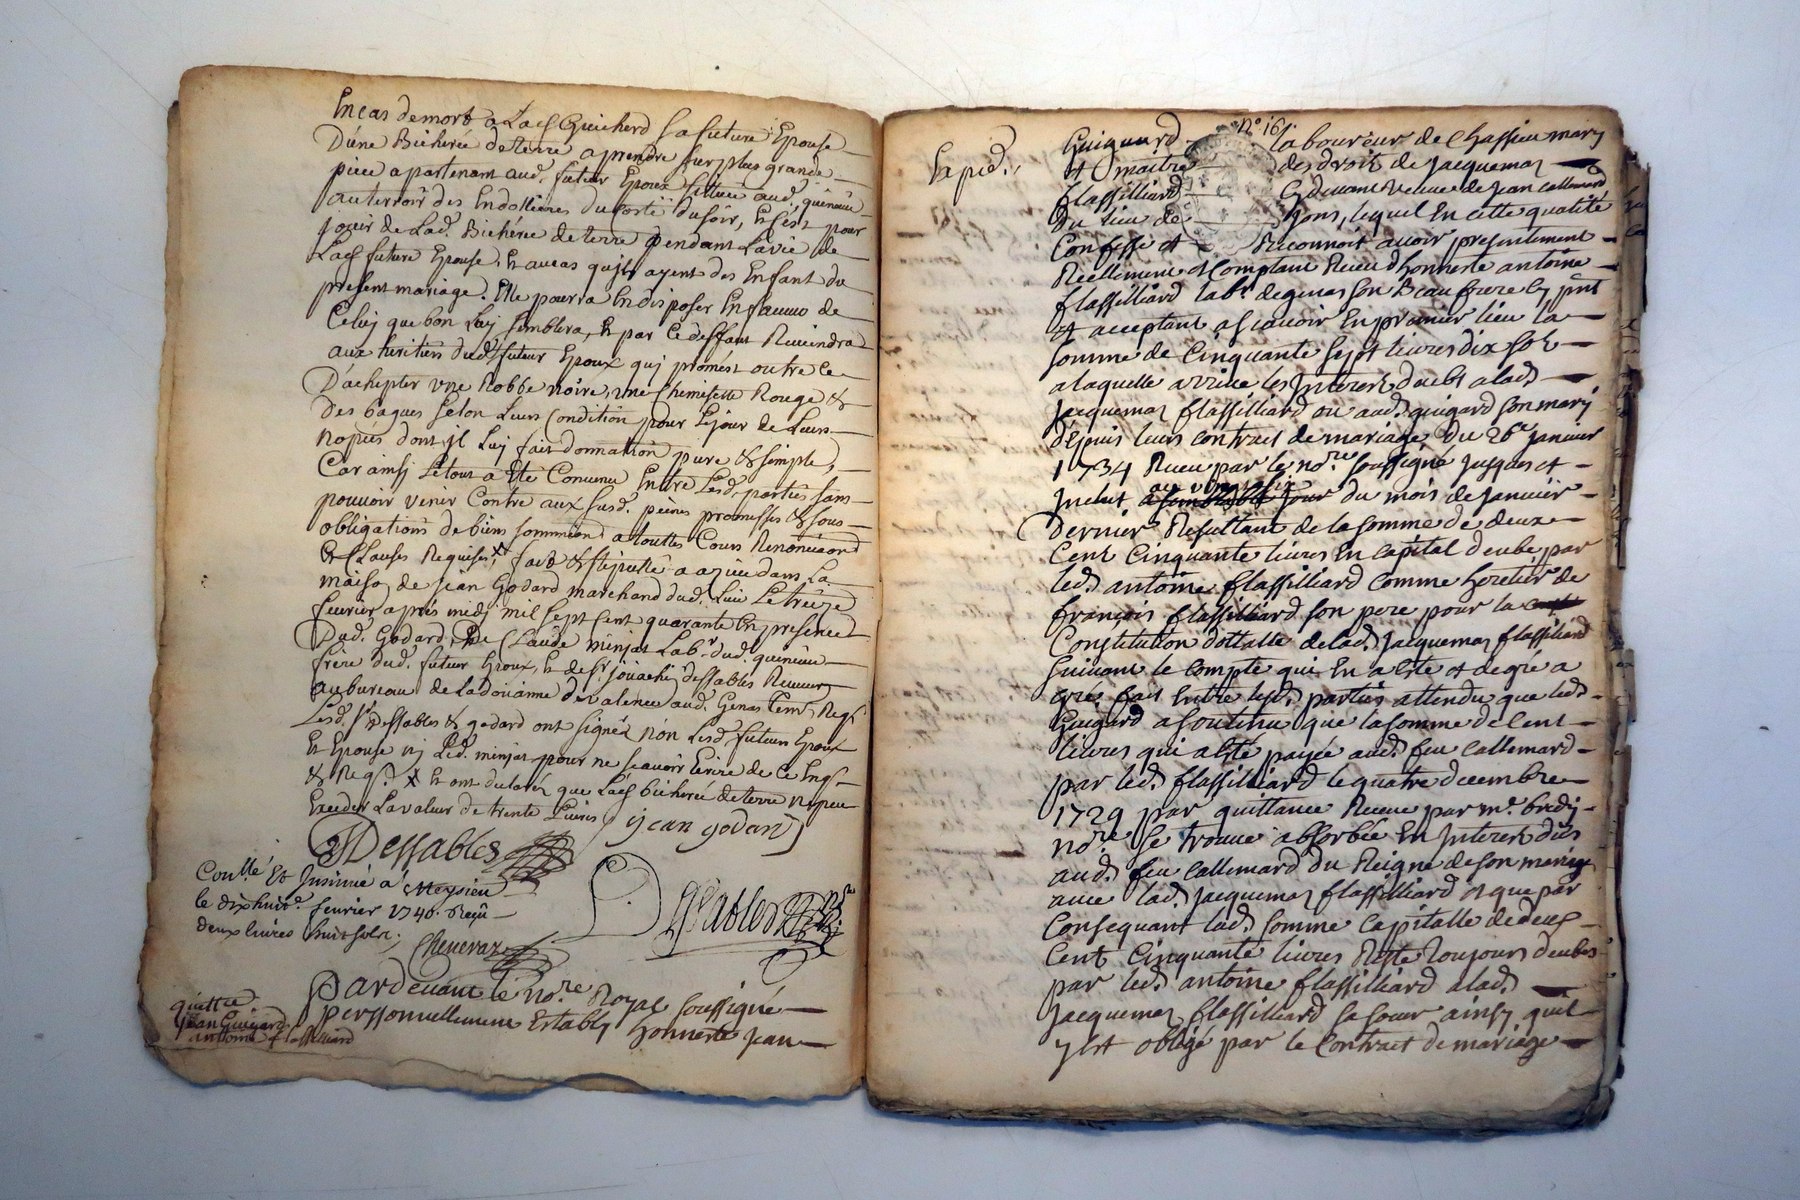 En cas de mort a Lad Guicherd sa future Epouse
D'une Bicherée de terre a prendre sur plus grande
piece apartenant aud. futur Epoux scittuée aud.
au terroir des Endollieres du costé du soir, Et c'est pour
jouir de Lad. Bicherée de terre pendant La vie de
Lad future Epouse, Et au cas qu'ils ayent des Enfant du
present mariage. Elle pourra En disposer En faveur de
Celuy que bon Luy semblera, Et par Ce deffaut Reviendra
aux heritiers dud. futeur Epoux qui promést outre ce
D'achepter une Robbe noire, une Chemisette Rouge &
des bagues selon Leurs Condition pour Le jour de Leurs
nopces dont il Luy fait donnation pure & simple,
Car ainsy Le tout a Eté Convenu Entre Lesd. parties sans
pouvoir venir Contre aux susd. peines promesses & sous
obligations de biens a touttes Cours
& Clauses Requises, fait & stipullé a azieu dans La
maison de Jean Godard marchand dud. Lieu Le treize
fevrier après medy mil sept cent quarante En presence
Dud. Godard, De Claude minjat Lab. dud.
frère dud. futeur Epoux, Et de sr. joüachi dessables Receveur
au bureau de La doüanne de valence aud. Genas
Lesd. sr. Dessables & godard ont signés non Lesd. futeurs Epoux
Et Epouse ny Led. minjat pour ne scavoir Ecrire de Ce Enq.
& Req. X Et ont declarés que Lad bicherée de terre ne peu
Exceder La valeur de trente Livres jean godard
Dessables
Con.llé Et Insinué a Meysieu
le dix huit.e fevrier 1740. Reçu
deux livres huit sols.
Chenevaz
Dessables
Pardevant le no.re Royal soussigné
personnellement Estably honneste Jean
quitt.ce
jean Guigard
antoine flassilliard
N° 16
Expéd.
Guiguard laboureur de Chassieu mary
et maitre des droits de Jacquemaz
flassilliard Cy devant veuve de Jean Callemard
du lieu de Jons, lequel En cette qualité
Confesse et Reconnoit avoir presentement
Reellement et Comptant Receu d'honneste antoine
flassilliard lab.r de genas son Beau frere Cy pnt
et acceptant a scavoir En premier lieu la
somme de Cinquante sept livres dix sols
a laquelle arrive les Interets deubt a lad.
Jacquemaz flassilliard ou aud. guigard son mary
depuis leurs contract de mariage du 26e janvier
1734 Receu par le no.re soussigné jusques et
Inclut au vingt six du mois de janvier
Dernier Resultant de la somme de deux
Cent Cinquante livres En Capital deube par
led. antoine flassilliard comme heretier de
françois flassilliard son pere pour la
Constitution dottalle de lad. Jacquemaz flassiliard
suivant le Compte qui En a esté et de gré a
gré fait Entre lesd. parties attendu que led.
Guigard a soutenu que la somme de Cent
livres qui a Esté payée aud. feu Callemard
par led. flassilliard le quatre decembre
1729 par quittance Receue par m.e
no.re se trouve absorbée En Interets dûs
aud. feu Callemard du Reigne de son mariage
avec lad. Jacquemaz flassilliard et que par
Consequant lad. somme Capitalle de deux
Cent Cinquante livres Reste toujours deubes
par led. antoine flassilliard a lad.
Jacquemaz flassilliard sa soeur ainsy quil
y est obligé par le Contract de mariage